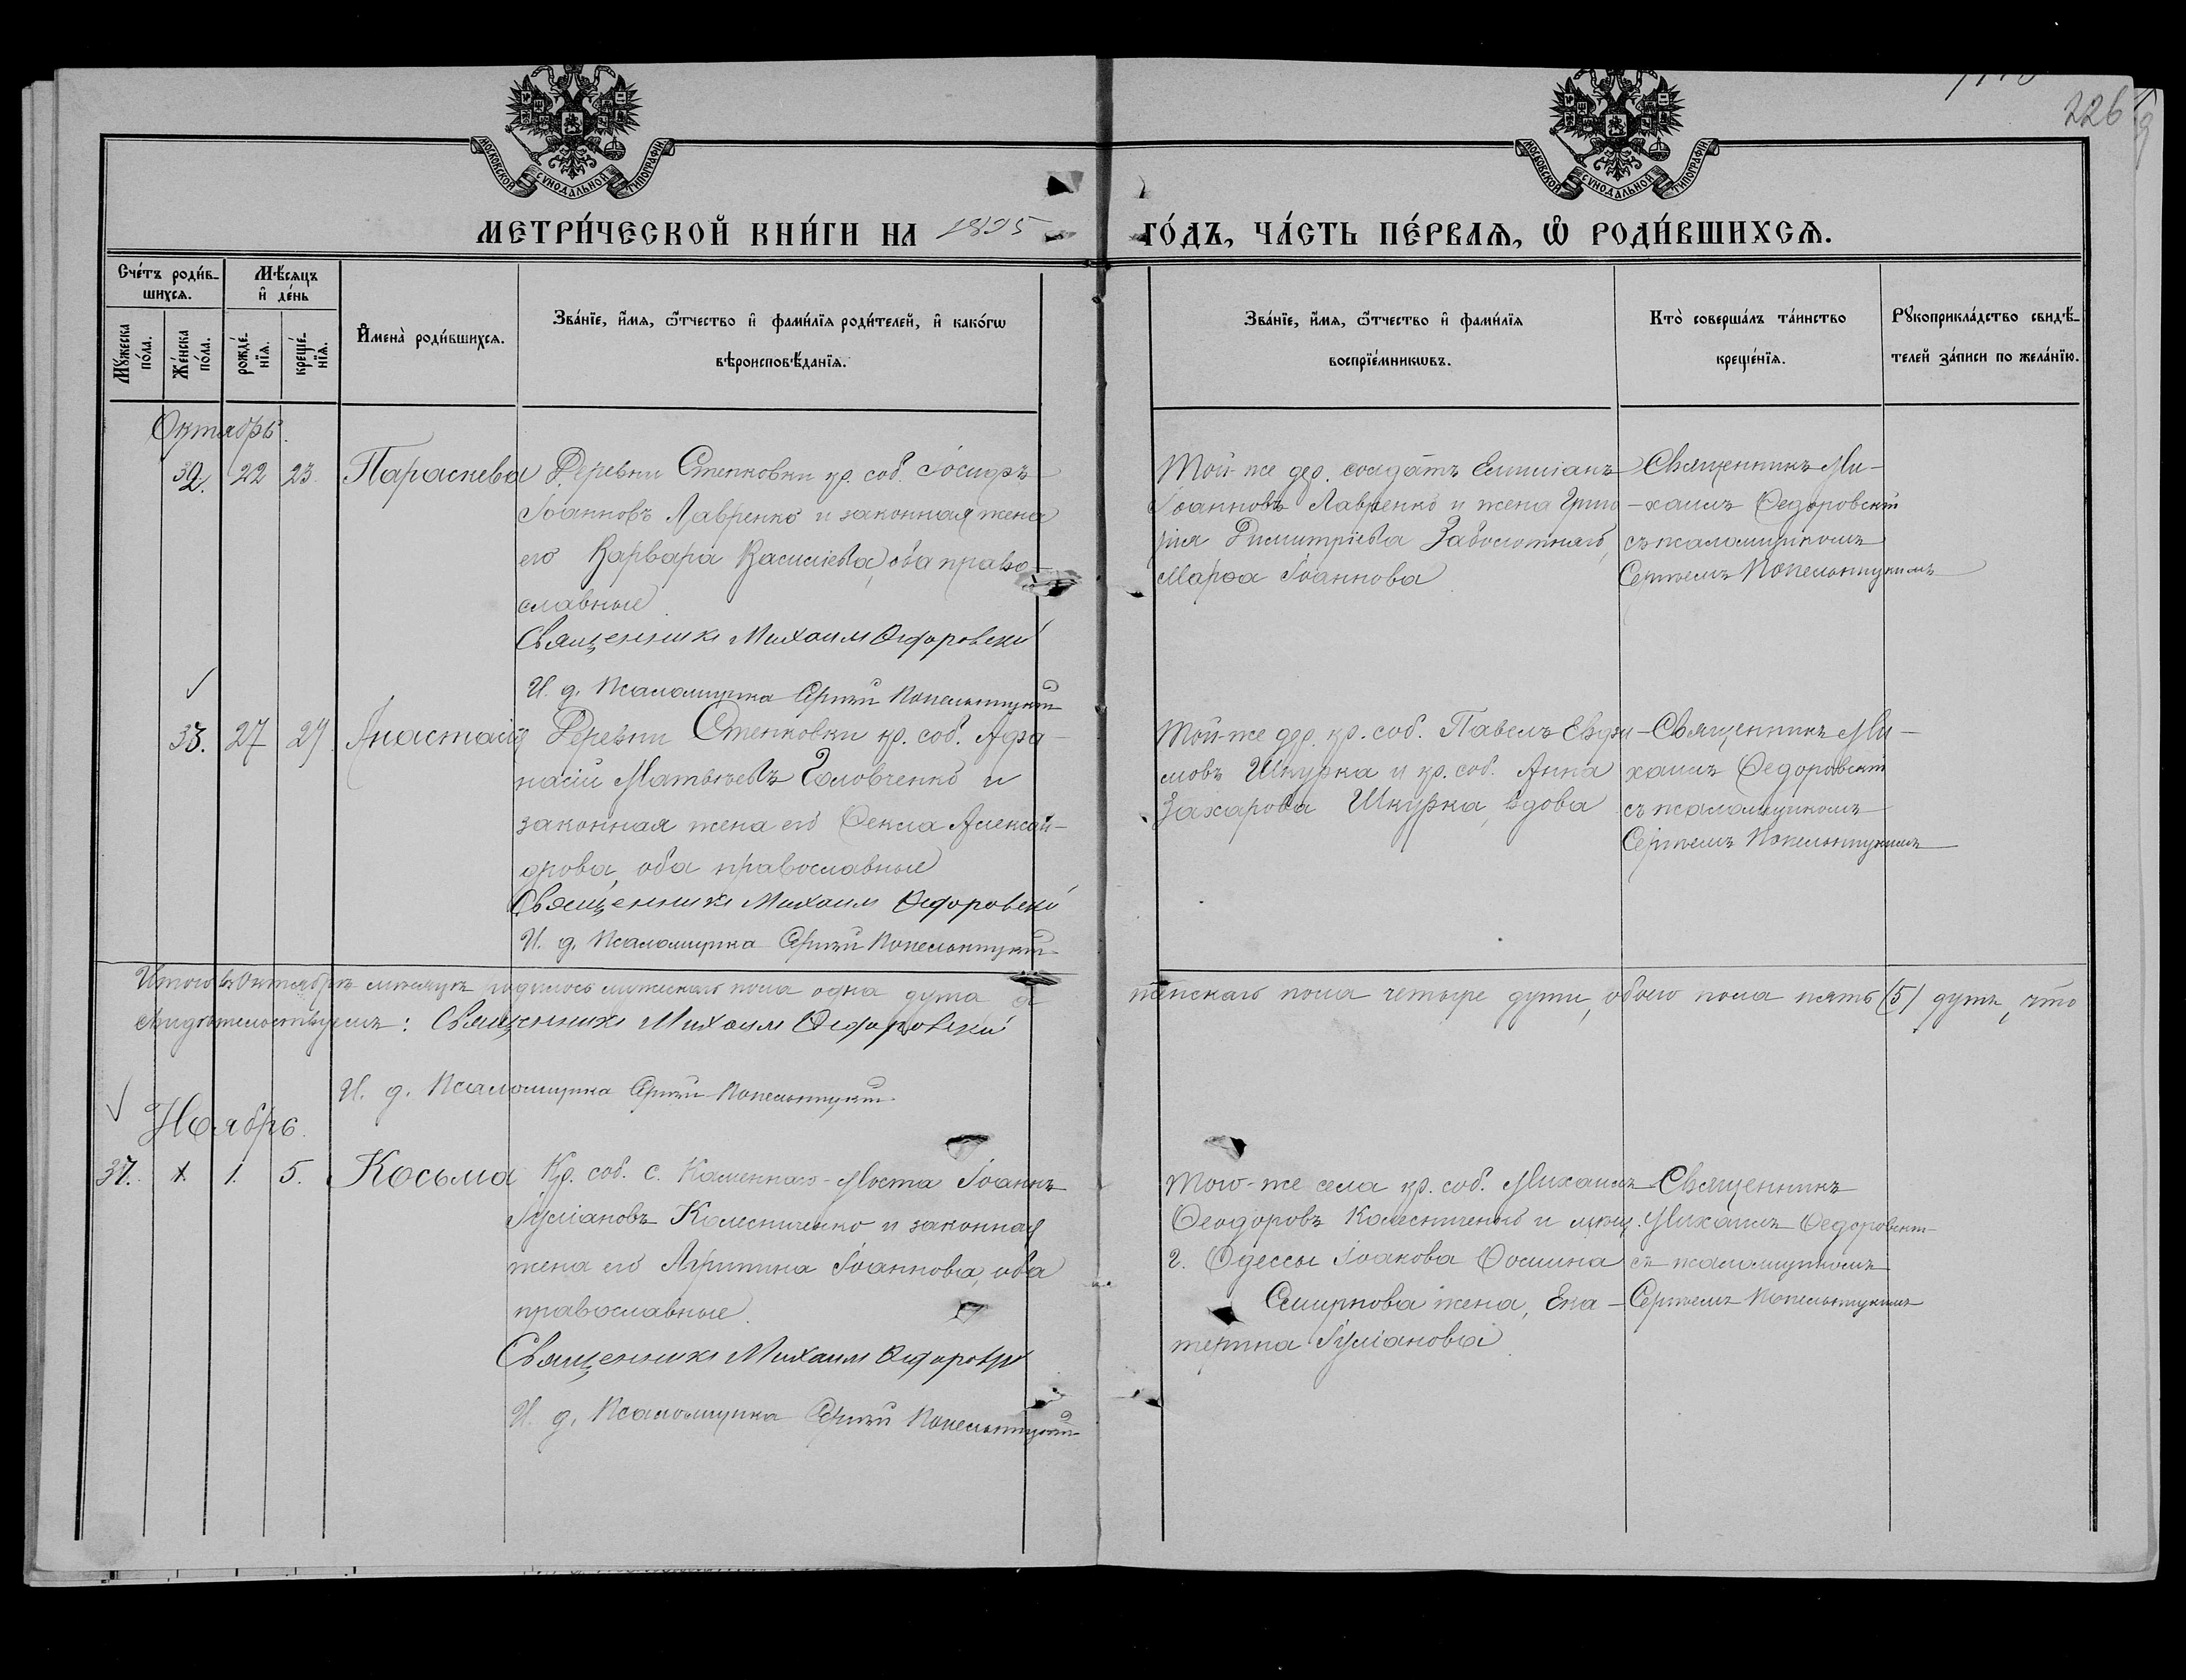 226
МОСКОВСКОЙ СУНОДАЛЬНОЙ ТИПОГРАФІИ
МОСКОВСКОЙ СУНОДАЛЬНОЙ ТИПОГРАФІИ
МЕТРИ́ЧЕСКОЙ КНИ́ГИ НА 1895 ГО́ДЪ, ЧА́СТЬ ПЕ́РВАѦ, Ѡ РОДИ́ВШИХСѦ.
Сче́тъ роди́в-
шихсѧ.
Мꙋ́жеска по́ла.
Же́нска по́ла.
Мѣ́сѧцъ
и де́нь
рожде́-
нїѧ.
креще́-
нїѧ.
Имена̀ роди́вшихсѧ.
Зва́нїе, и́мѧ, ѻ́тчество и фами́лїѧ роди́телей, и како́гѡ
вѣроисповѣ́данїѧ.
Зва́нїе, и́мѧ, ѻ́тчество и фами́лїѧ
воспрїе́мникѡвъ.
Кто̀ соверша́лъ та́инство
креще́нїѧ.
Рꙋкоприкла́дство свидѣ́-
телей за́писи по жела́нїю.
Октябрь.
32. 22 23. Параскева
Деревни Степковки кр. соб. Іосифъ
Іоанновъ Лавренко и законная жена
его Варвара Василіева, оба право-
славные.
Священникъ Михаилъ Ѳедоровскій
И. д. Псаломщика Сергѣй Попельницкій
Той-же дер. солдатъ Емиліанъ
Іоанновъ Лавренко и жена Григо
рія Димитріева Заболотнаго,
Марѳа Іоаннова
Священникъ Ми-
-хаилъ Ѳедоровскій
съ псаломщикомъ
Сергѣемъ Попельницкимъ
33. 27 29 Анастасія
Деревни Степковки кр. соб. Афа-
насій Матѳѣевъ Головченко и
законная жена его Ѳекла Алексан-
дрова, оба православные
Священникъ Михаилъ Ѳедоровскій
И. д. Псаломщика Сергѣй Попельницкій
Той-же дер. кр. соб. Павелъ Евфи-
мовъ Шкурка и кр. соб. Анна
Захарова Шкурка, вдова
Священникъ Ми-
хаилъ Ѳедоровскій
съ псаломщикомъ
Сергѣемъ Попельницкимъ
Итого въ Октябрѣ мѣсяцѣ родилось мужескаго пола одна душа, а женскаго пола четыре души, обоего пола пять (5) душъ, что
свидѣтельствуемъ: Священникъ Михаилъ Ѳедоровскій
И. д. Псаломщика Сергѣй Попельницкій
Ноябрь.
37. х 1. 5. Косьма
Кр. соб. с. Каменнаго-Моста Іоаннъ
Іуліановъ Колесниченко и законная
жена его Агрипина Іоаннова, оба
православные.
Священникъ Михаилъ Ѳедоровскій
И. д. Псаломщика Сергѣй Попельницкій
Того-же села кр. соб. Михаилъ
Ѳеодоровъ Колесниченко и мѣщ.
г. Одессы Іоакова
Смирнова жена, Ека-
терина Іуліанова
Священникъ
Михаилъ Ѳедоровскій
съ псаломщикомъ
Сергѣемъ Попельницкимъ